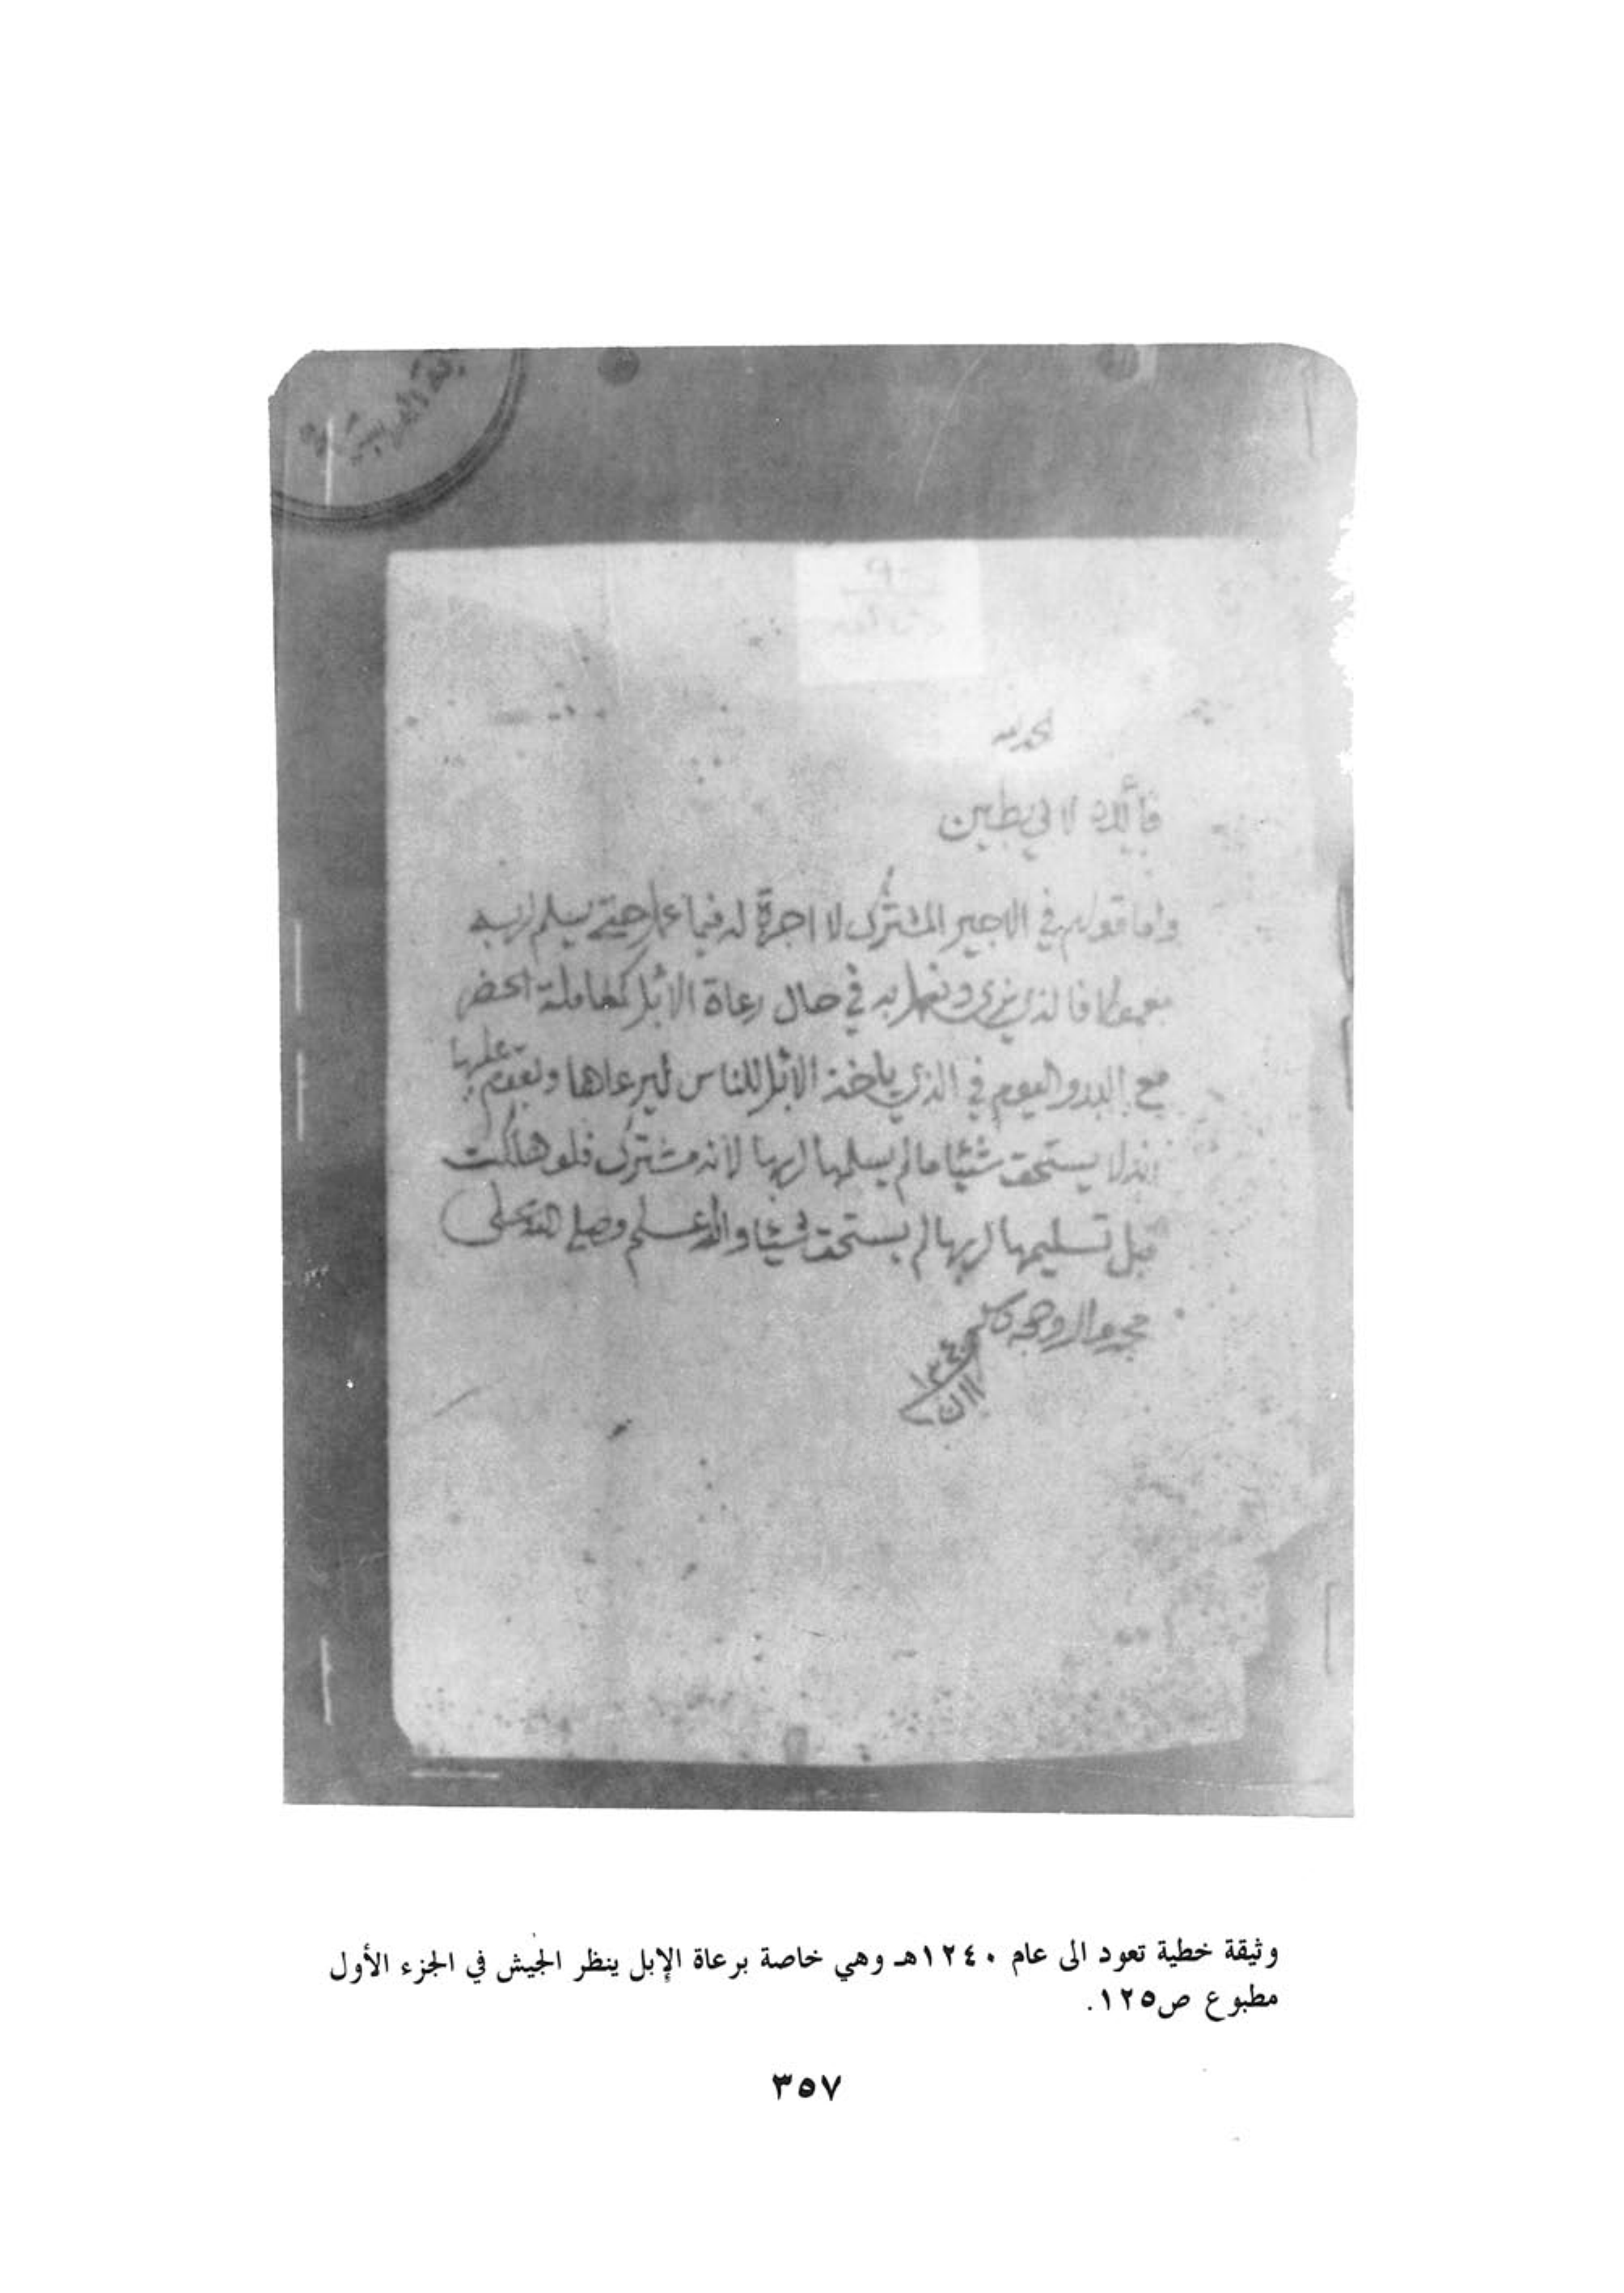 الحمد لله
فائدة لابي بطين
واما قولهم في الاجير المشترك لا اجرة له فيما عمل حتى يسلم لربه
معمولا فالذي نرى ونعمل به في حال رعاة الابل كمعاملة الحضر
مع البدو اليوم في الذي ياخذ الابل للناس ليرعاها ويقوم عليها
انه لا يستحق شيئا ما لم يسلمها لربها لانه مشترك فلو هلكت
قبل تسليمها لربها لم يستحق شيئا والله اعلم وصلى الله على
محمد واله وصحبه وسلم
١٢٤٠
وثيقة خطية تعود الى عام ١٢٤٠هـ وهي خاصة برعاة الإبل ينظر الجيش في الجزء الأول
مطبوع ص١٢٥.
٣٥٧